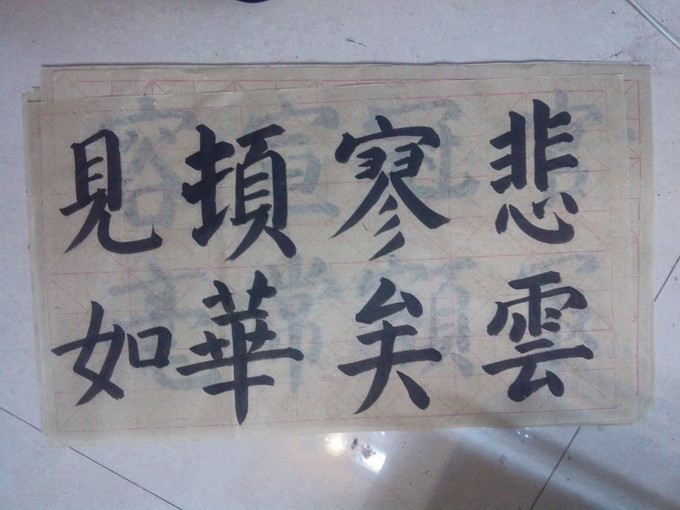 悲雲
寥矣
頓華
見如